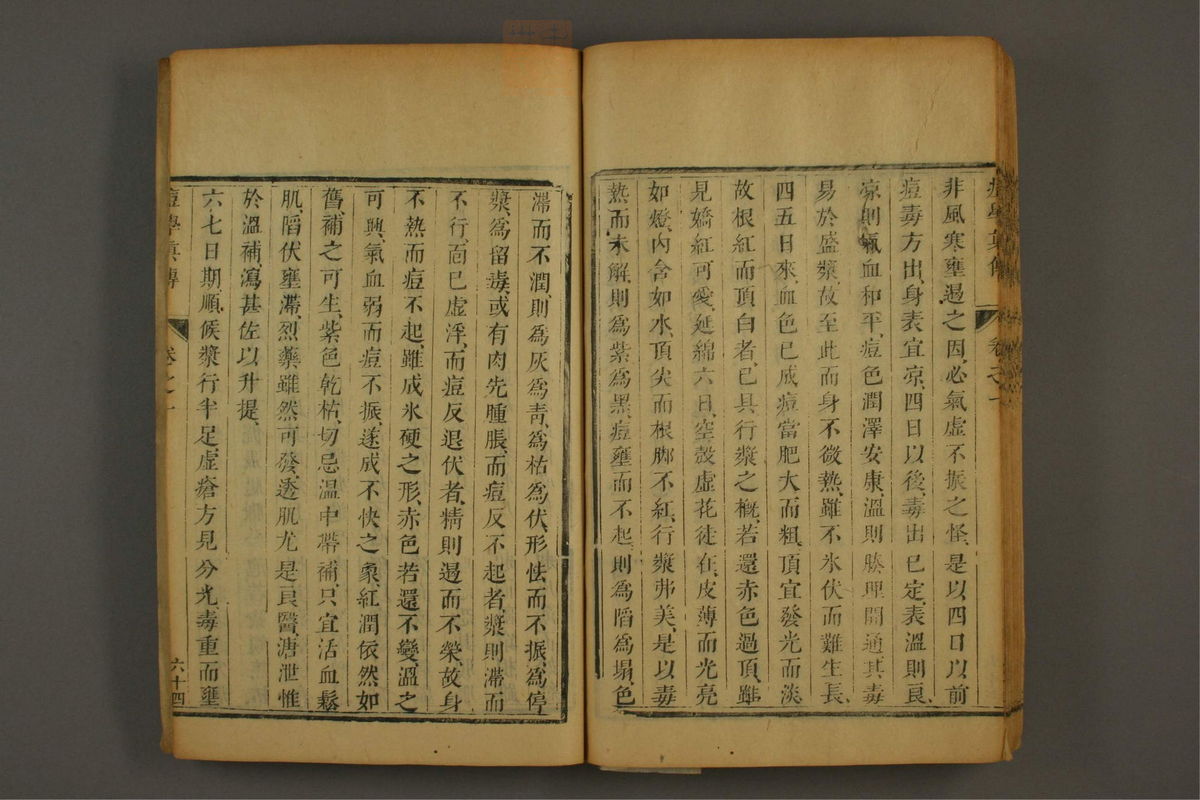 非風寒壅遏之因、必氣虛不振之怪、是以四日以前
痘毒方出、身表宜凉、四日以後、毒出已定、表溫則良
凉則氣血和平、痘色潤澤安康、溫則腠理開通其毒
易於盛漿、故至此而身不微熱、雖不氷伏而難生長、
四五日來、血色已成、痘當肥大而粗、頂宜發光而淡
故根紅而頂白者、已具行漿之概、若還赤色過頂、雖
見嬌紅可愛、延綿六日、空殼虛花徒在、皮薄而光亮
如燈、內含如水、頂尖而根脚不紅、行漿弗美、是以毒
熱而未解、則爲紫爲黑、痘壅而不起、則爲陷爲塌、色
滯而不潤、則爲灰爲靑、爲枯爲伏、形怯而不振、爲停
漿、爲留毒、或有肉先腫脹、而痘反不起者、漿則滯而
不行、面已虛浮、而痘反退伏者、精則遏而不榮、故身
不熱而痘不起、雖成氷硬之形、赤色若還不變、溫之
可興、氣血弱而痘不振、遂成不快之象、紅潤依然如
舊、補之可生、紫色乾枯、切忌溫中帶補、只宜活血鬆
肌、陷伏壅滯、烈藥雖然可發、透肌尤是良醫、溏泄惟
於溫補、瀉甚佐以升提、
六七日期、順候漿行半足、虛瘡方見分光、毒重而壅
痘學眞傳 卷之七 六十四